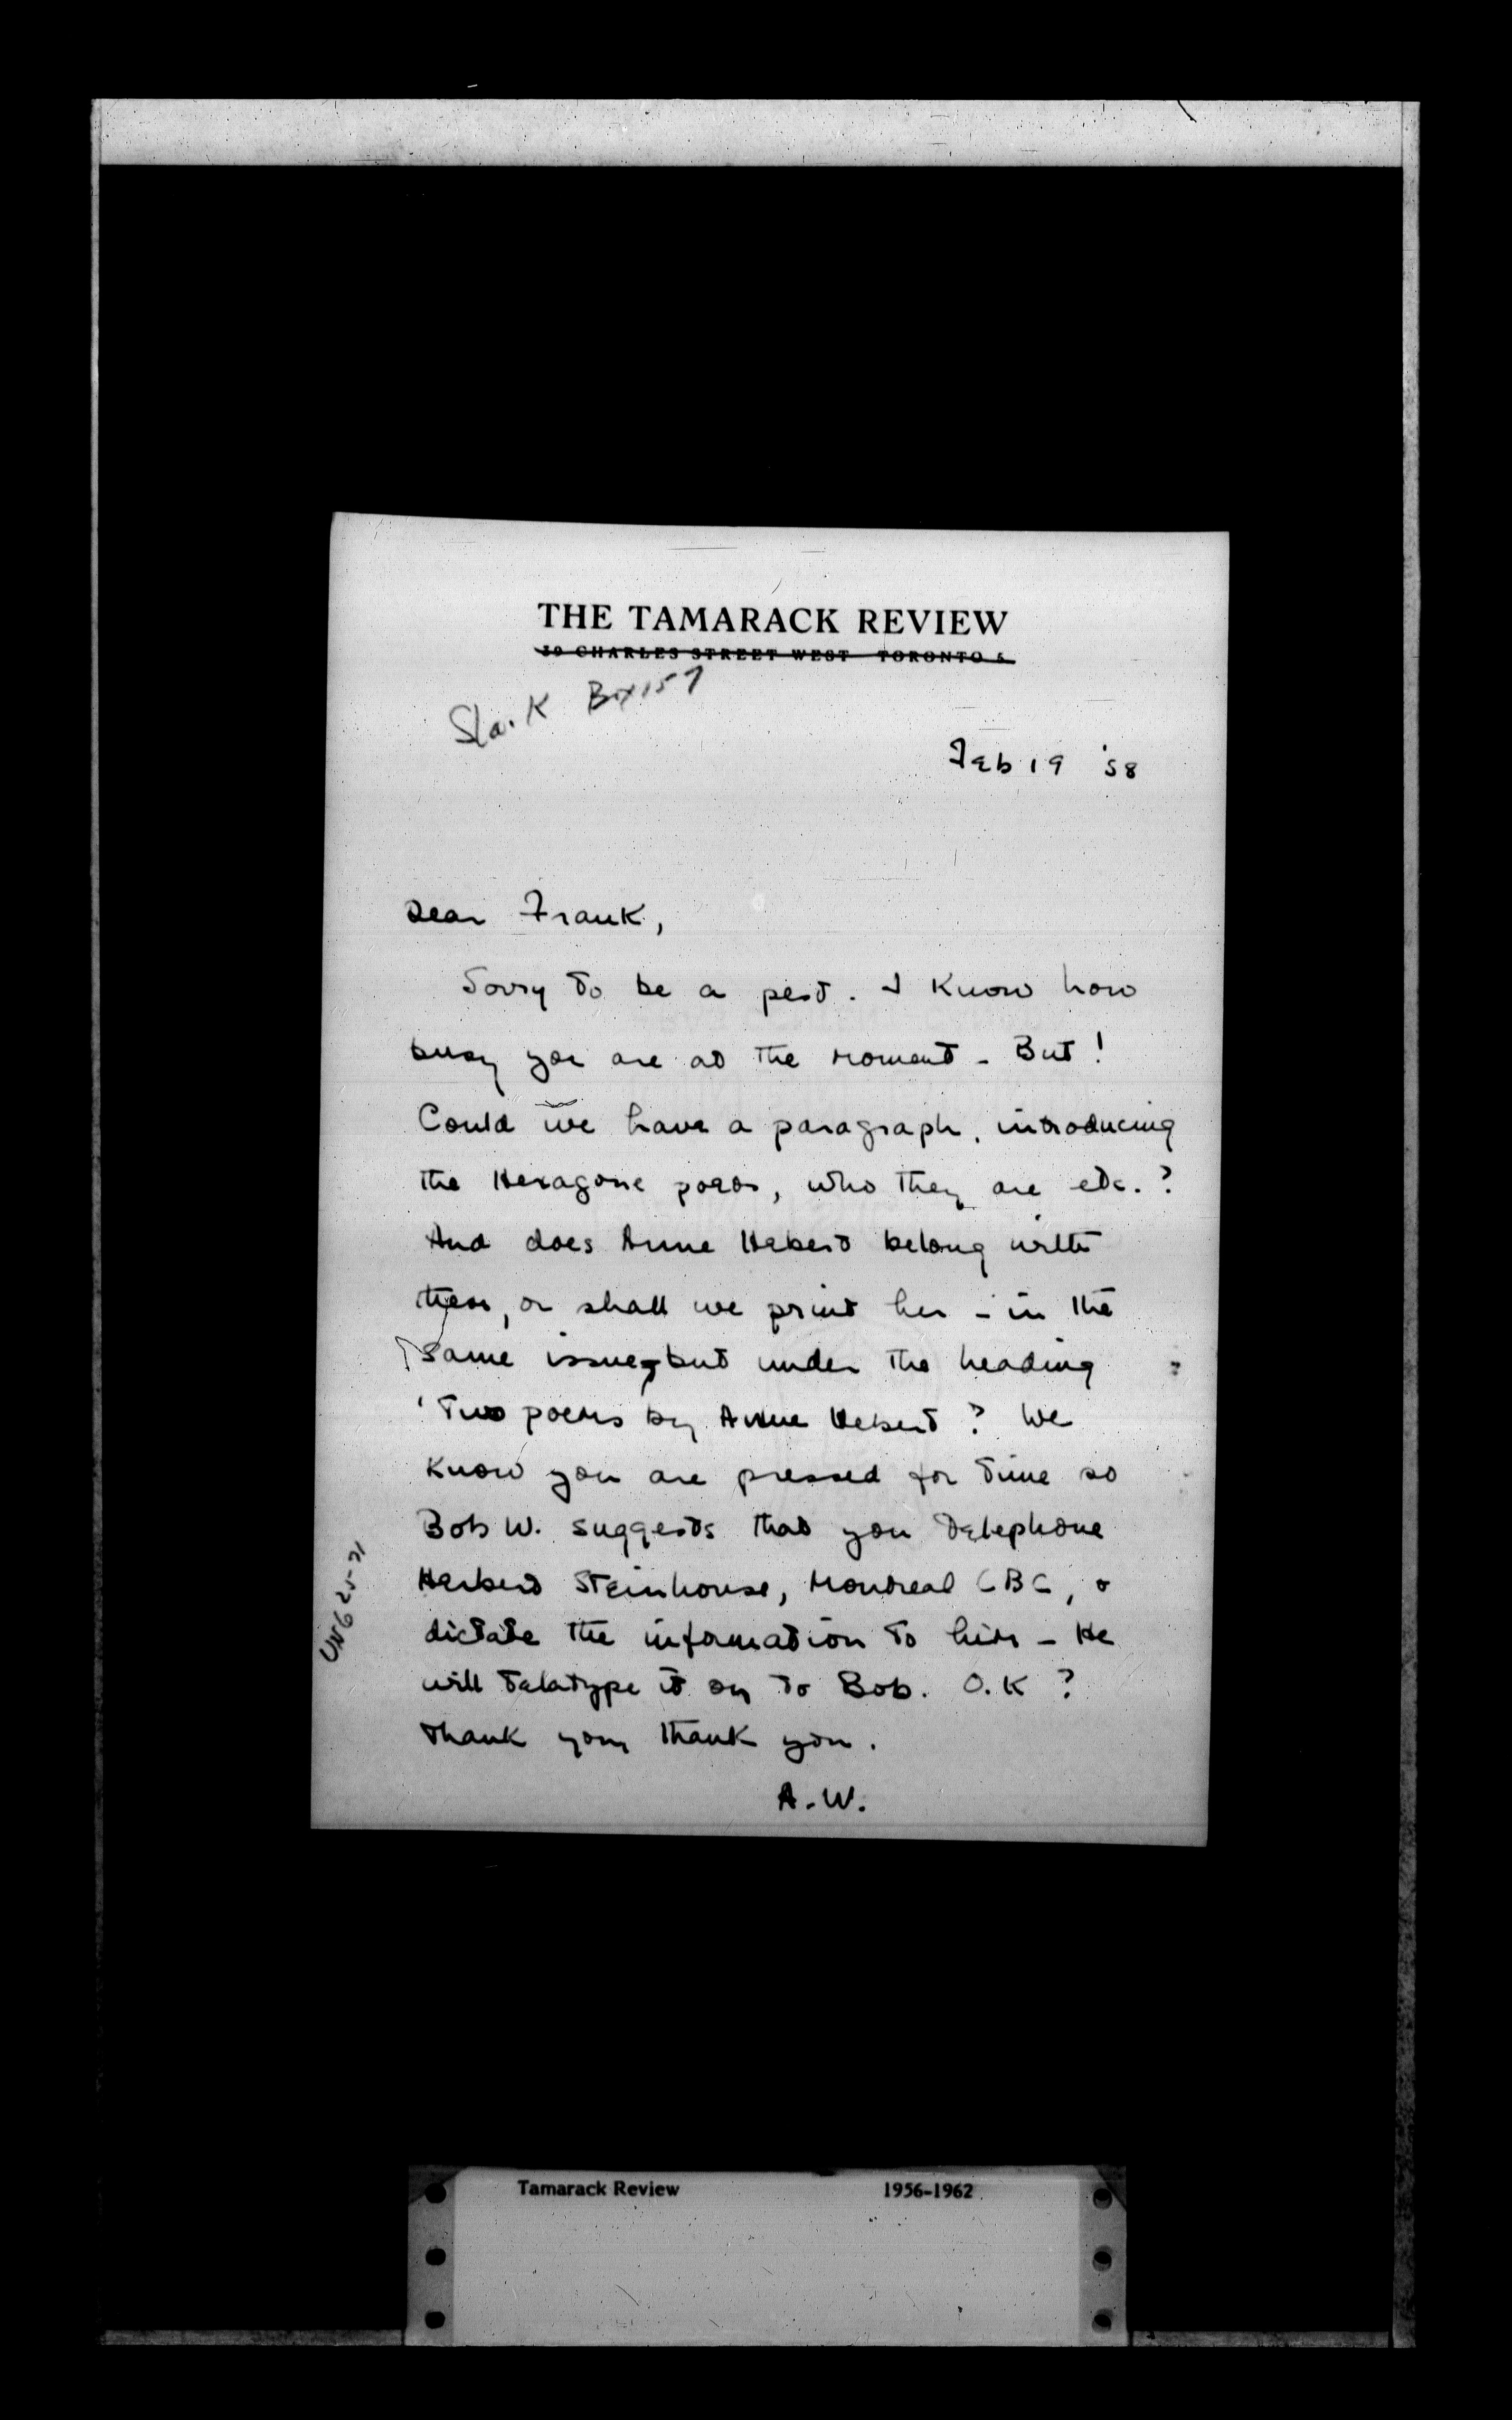 THE TAMARACK REVIEW
39 CHARLES STREET WEST TORONTO 5
Box 157
Feb 19 '58
Dear Frank,
Sorry to be a pest. I know how
busy you are at the moment - But!
Could we have a paragraph, introducing
the Hexagone poets, who they are etc.?
And does Anne Hebert belong with
them, or shall we print her - in the
same issue, but under the heading
'Two poems by Anne Hebert? We
know you are pressed for time so
Bob W. suggests that you telephone
Herbert Steinhouse, Montreal CBC, &
dictate the information to him - He
will teletype it on to Bob. O.K ?
Thank you, thank you.
A.W.
Tamarack Review 1956-1962